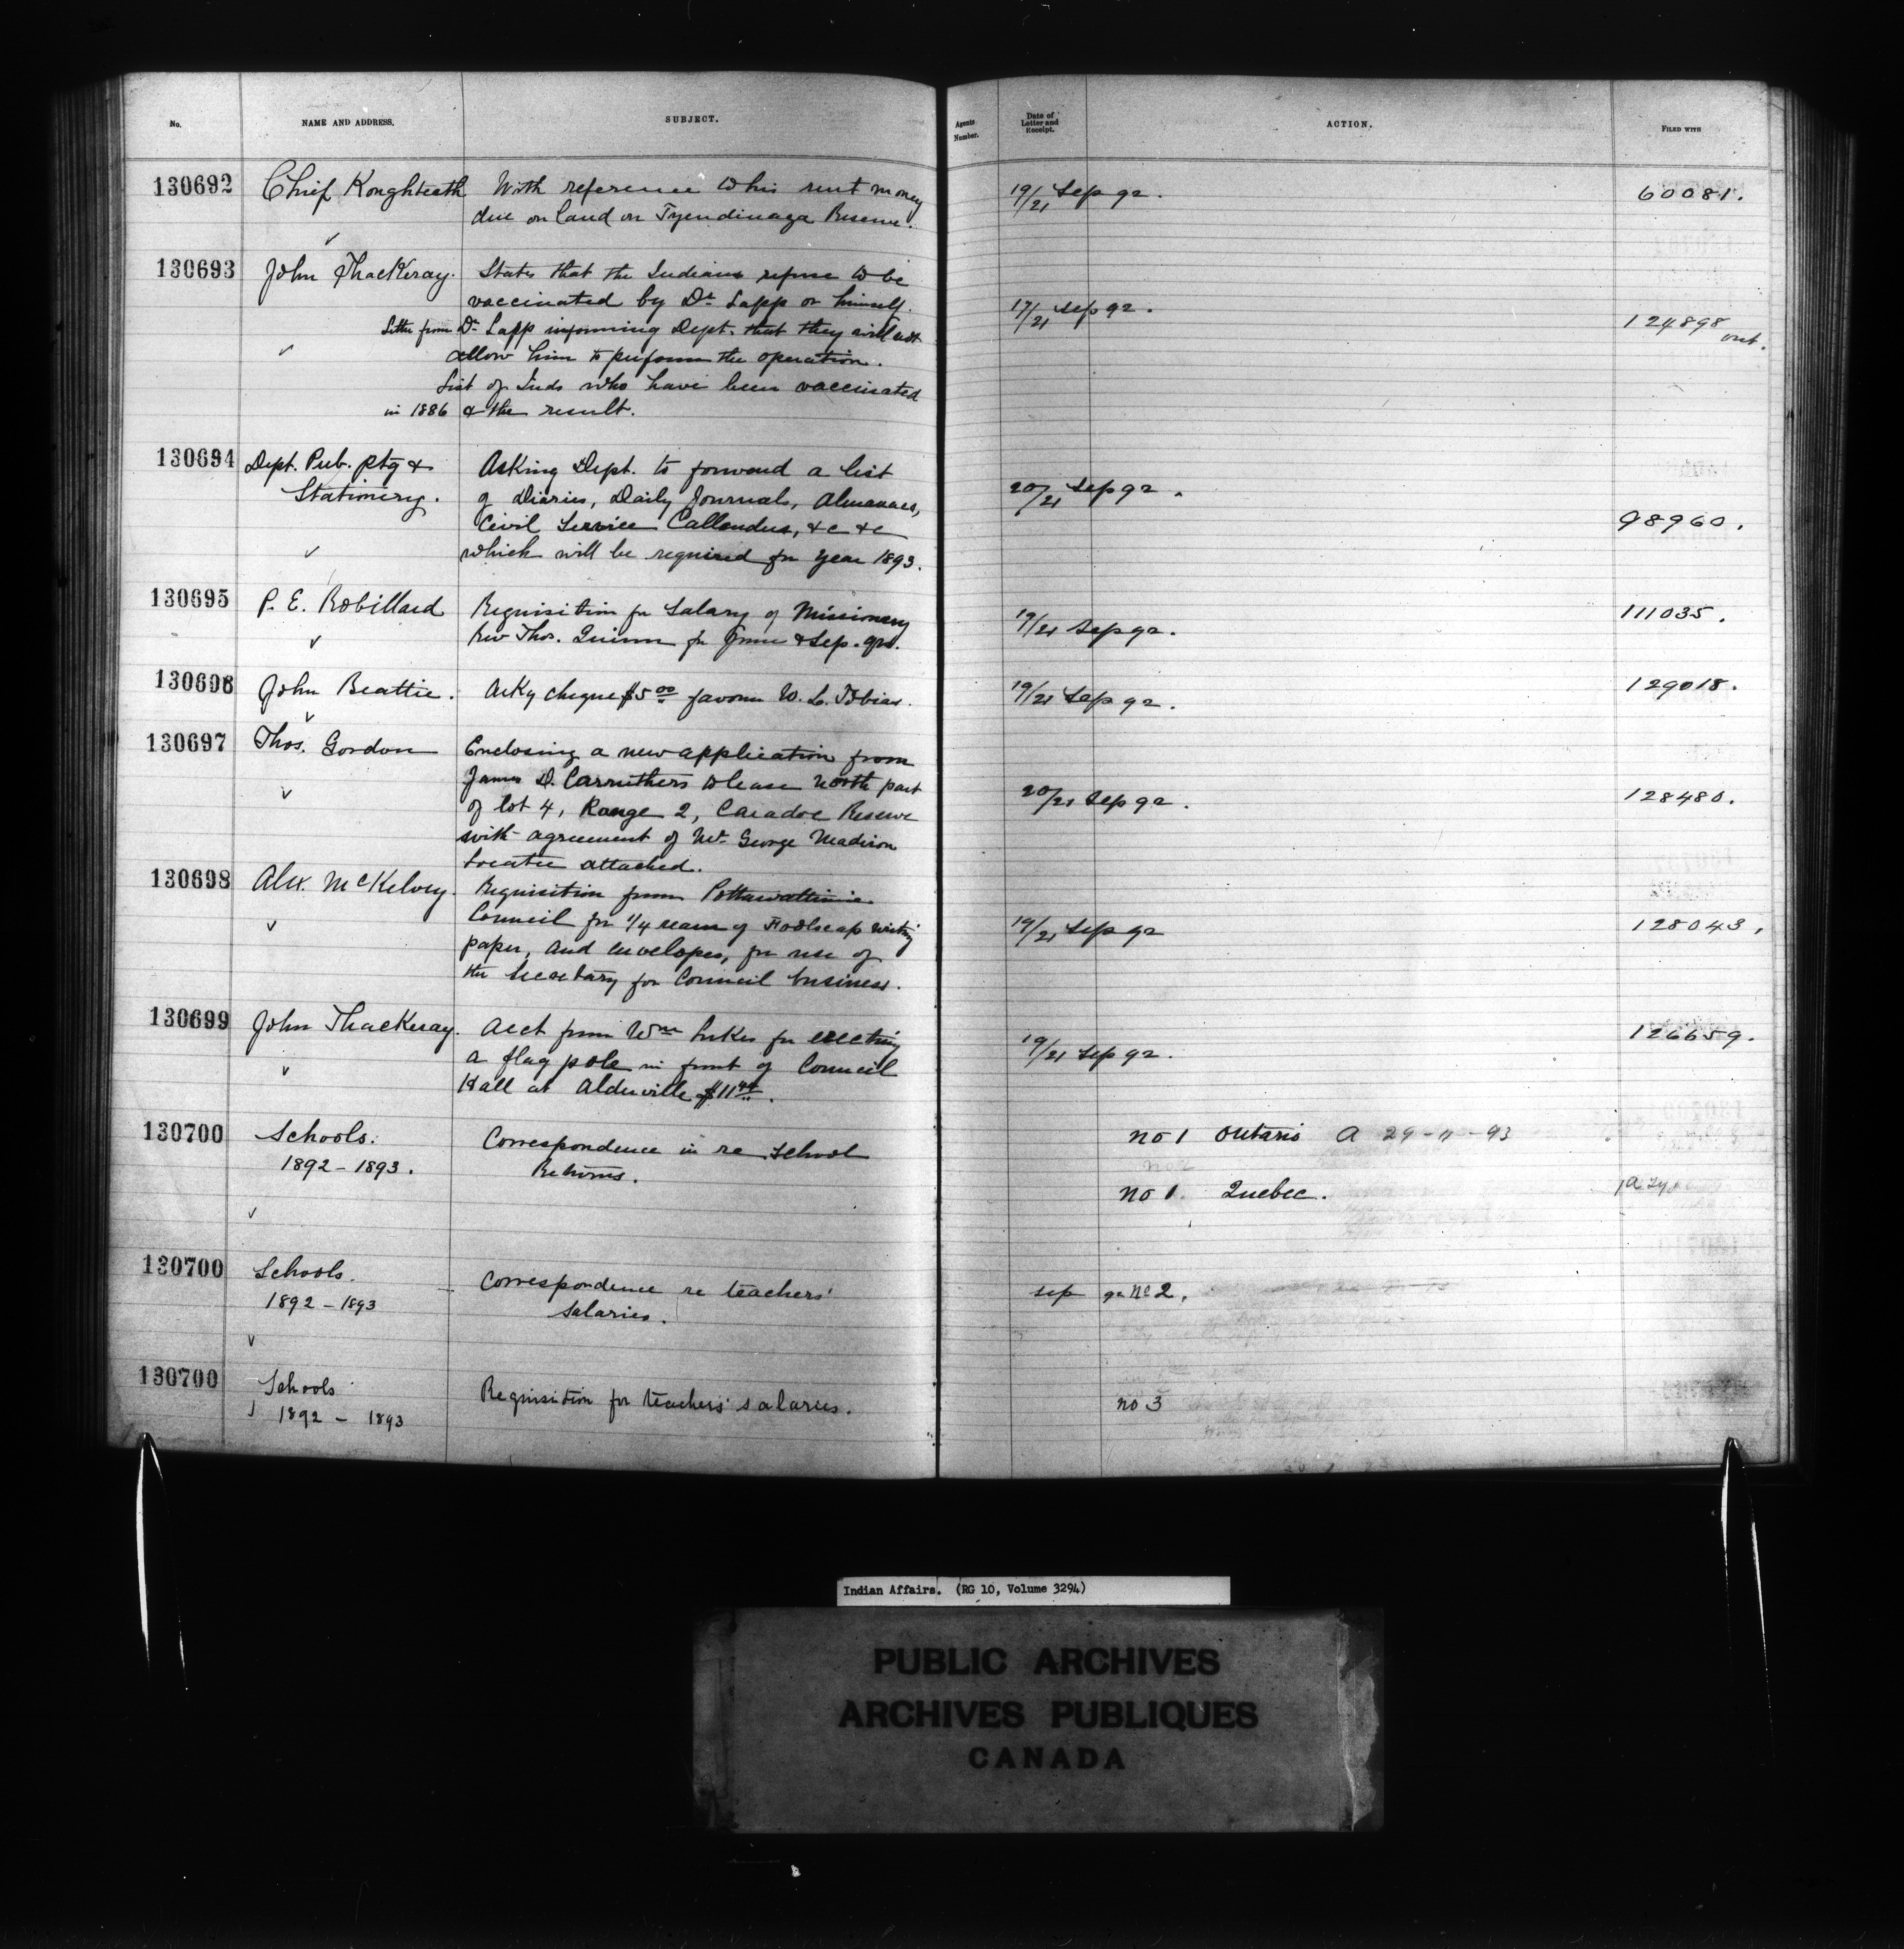 No. NAME AND ADDRESS. SUBJECT. Agents Number. Date of Letter and Receipt. ACTION. FILED WITH
130692 Chief Konghteeth With reference to his rent money 19/21 Sep 92. 60081.
due on land on Tyendinaga Reserve.
130693 John Thackeray. States that the Indians refuse to be
vaccinated by Dr Lapp or himself. 17/21 Sep 92.
Letter from Dr Lapp informing Dept. that they will not 124898 ont.
allow him to perform the operation.
List of Inds who have been vaccinated
in 1886 & the result.
130694 Dept. Pub. Ptg & Asking Dept. to forward a list
Stationery. of Diaries, Daily Journals, Almanacs, 20/21 Sep 92.
Civil Service Callendars, &c &c 98960.
which will be required for year 1893.
130695 P. E. Robillard Requisition for Salary of Missionary 19/21 Sep 92. 111035.
Rev Thos. Quinn for June & Sep. qrs.
130696 John Beattie. Askg cheque $5 00 favour W. L. Tobias. 19/21 Sep 92. 129018.
130697 Thos. Gordon Enclosing a new application from
James D. Carruthers to lease North part
of lot 4, Range 2, Caradoc Reserve 20/21 Sep 92. 128480.
with agreement of Mr George Madison
locatee attached.
130698 Alex. McKelvey. Requisition from Pottawattimie
Council for 1/4 ream of Foolscap writing 19/21 Sep 92 128043.
paper, and envelopes, for use of
the Secretary for Council business.
130699 John Thackeray. Acct from Wm Lukes for erecting 19/21 Sep 92. 126659.
a flag pole in front of Council
Hall at Alderville $11 44.
130700 Schools. Correspondence in re School no 1 Ontario A 29-11-93
1892-1893. Returns.
no 1. Quebec.
130700 Schools. Correspondence re teachers' sep 92 No 2.
1892-1893 Salaries.
130700 Schools Requisition for teachers' salaries. no 3
1892 - 1893
Indian Affairs. (RG 10, Volume 3294)
PUBLIC ARCHIVES
ARCHIVES PUBLIQUES
CANADA